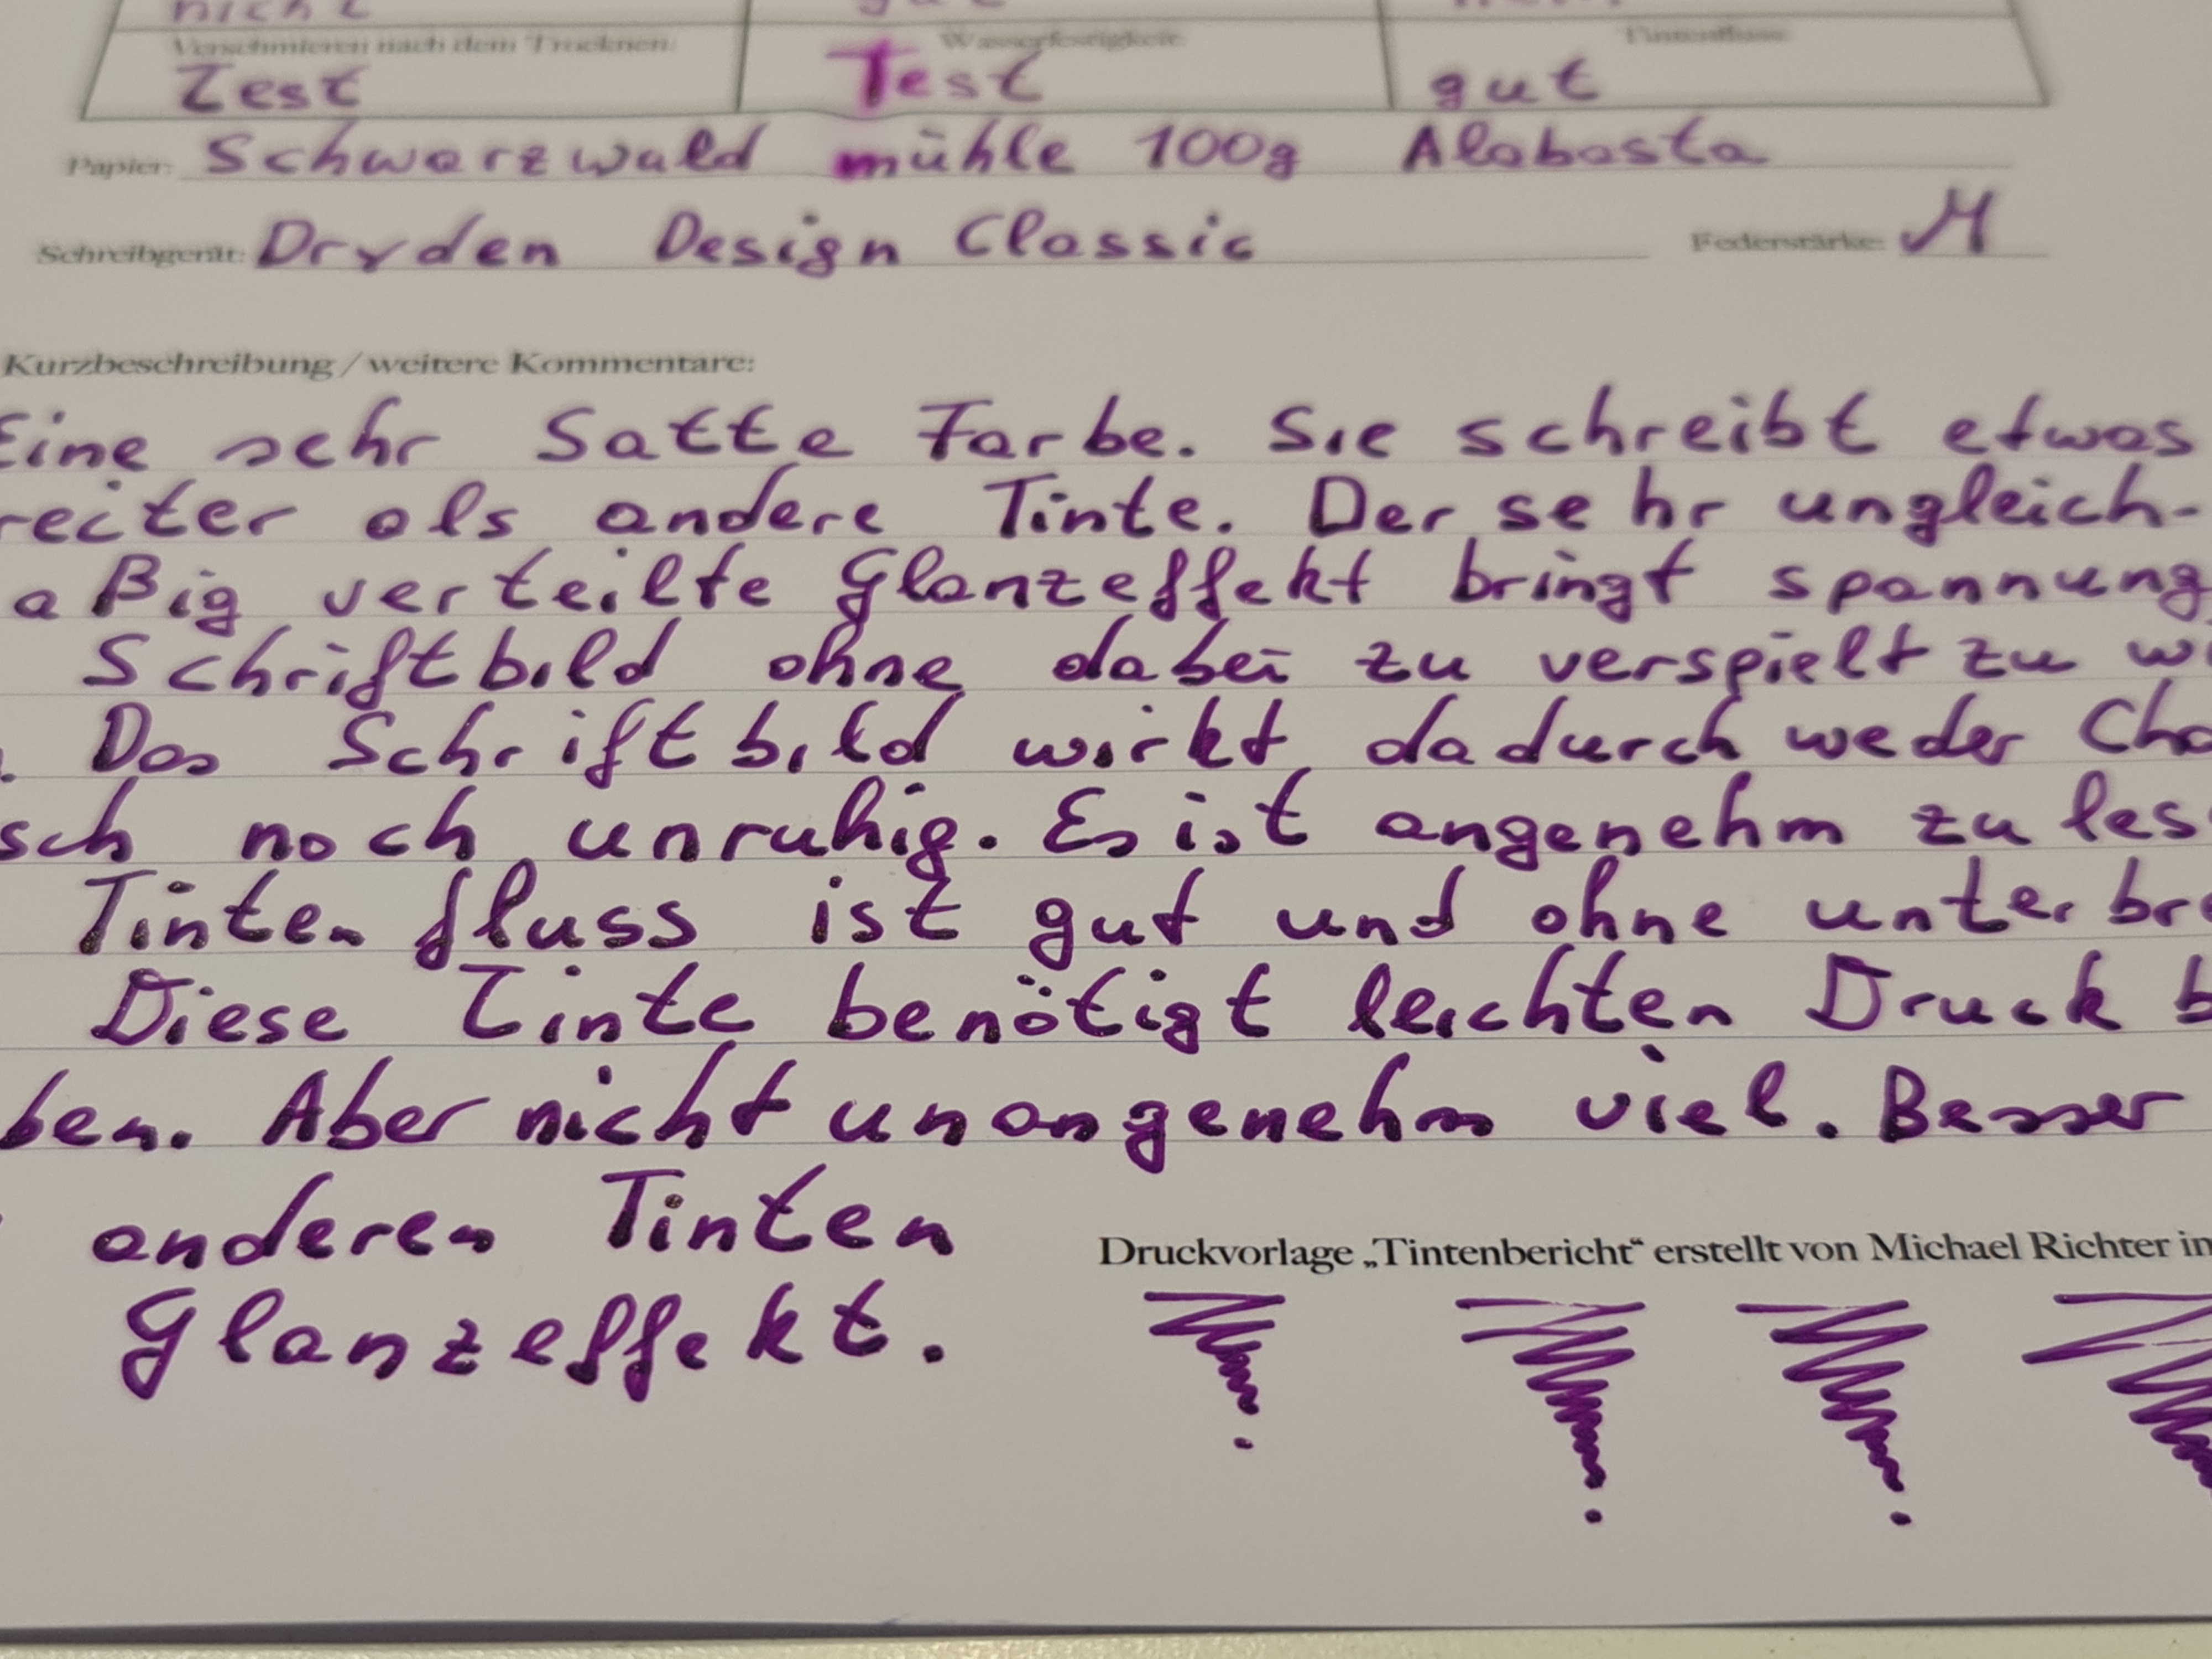 nicht
Verschmieren nach dem Trocknen: Wasserfestigkeit: Tintenfluss:
Test Test gut
Papier: Schwarzwald mühle 100g Alabasta
Schreibgerät: Dryden Design Classic Federstärke: M
Kurzbeschreibung / weitere Kommentare:
Eine sehr Satte Farbe. Sie schreibt etwas
reiter als andere Tinte. Der sehr ungleich-
aßig verteilte Glanzeffekt bringt spannung
Schriftbild ohne dabei zu verspielt zu wi
. Das Schriftbild wirkt dadurch weder Cha
sch noch unruhig. Es ist angenehm zu les
Tintenfluss ist gut und ohne unterbre
Diese Tinte benötigt leichten Druck b
ben. Aber nicht unangenehm viel. Besser
anderen Tinten
Glanzeffekt.
Druckvorlage „Tintenbericht“ erstellt von Michael Richter in